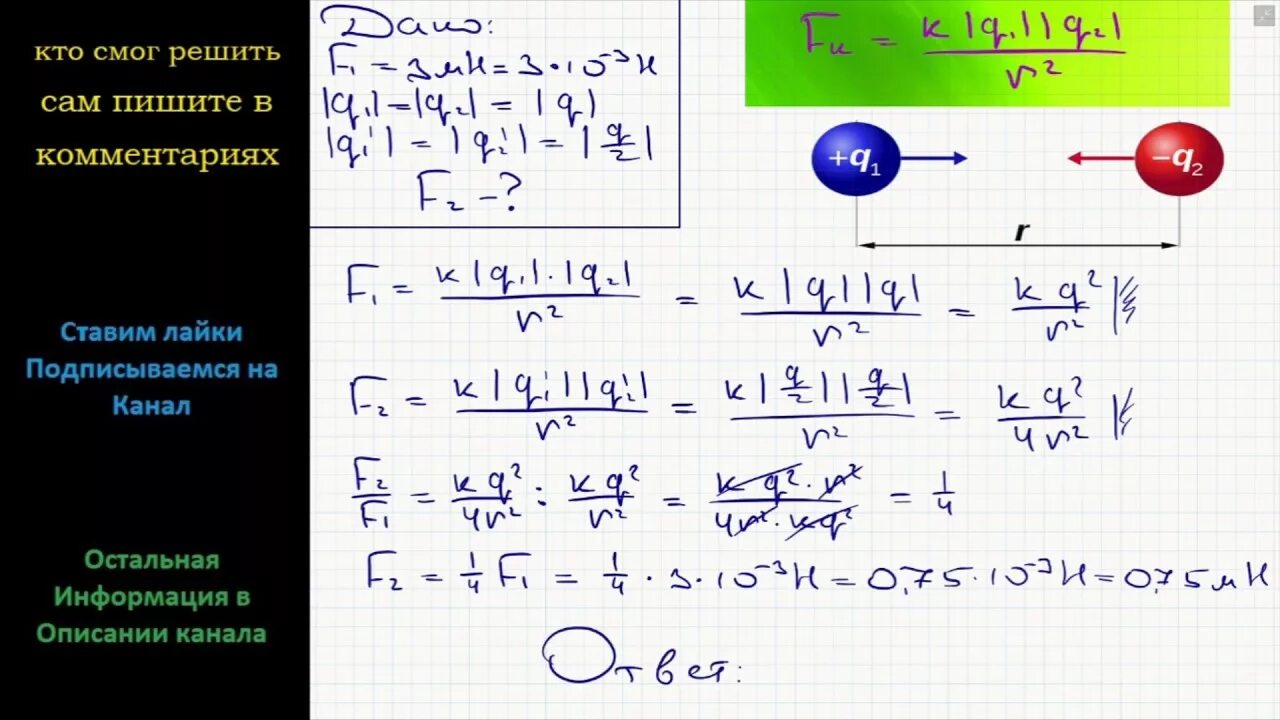 кто смог решить
сам пишите в
комментариях
Ставим лайки
Подписываемся на
Канал
Остальная
Информация в
Описании канала
Дано:
F₁ = 3 мН = 3·10⁻³ Н
|q₁| = |q₂| = |q|
|q₁'| = |q₂'| = |q/2|
F₂ - ?
Fк = k |q₁| |q₂| / r²
+q₁
−q₂
r
F₁ = k |q₁|·|q₂| / r² = k |q| |q| / r² = k q² / r²
F₂ = k |q₁'| |q₂'| / r² = k |q/2| |q/2| / r² = k q² / 4r²
F₂/F₁ = k q² / 4r² : k q² / r² = k q²·r² / 4r²·k q² = 1/4
F₂ = 1/4 F₁ = 1/4 · 3·10⁻³ Н = 0,75·10⁻³ Н = 0,75 мН
Ответ: